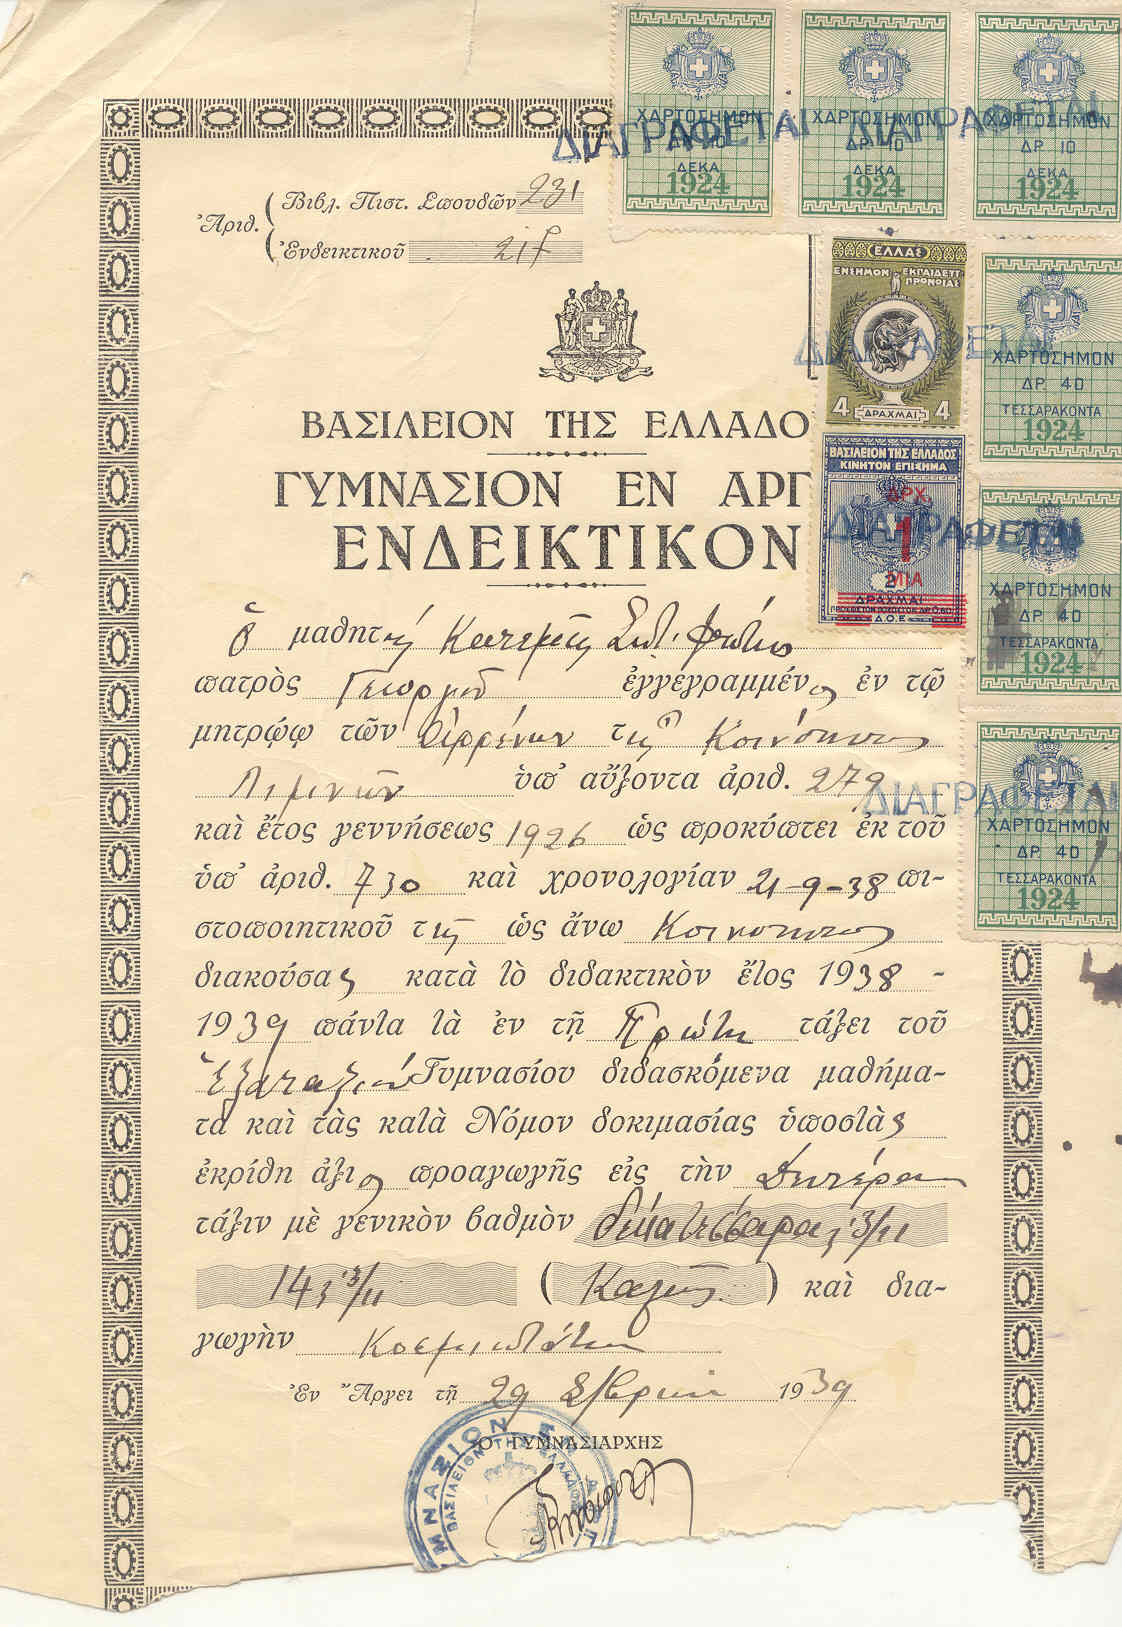 ΧΑΡΤΟΣΗΜΟΝ ΧΑΡΤΟΣΗΜΟΝ ΧΑΡΤΟΣΗΜΟΝ
ΔΙΑΓΡΑΦΕΤΑΙ ΔΙΑΓΡΑΦΕΤΑΙ
ΔΡ 10 ΔΡ 10
ΔΕΚΑ ΔΕΚΑ ΔΕΚΑ
1924 1924 1924
Ἀριθ. Βιβλ. Πιστ. Σπουδῶν 231
Ἐνδεικτικοῦ
ΕΛΛΑΣ
ΕΝΣΗΜΟΝ ΕΚΠΑΙΔΕΥΤ. ΠΡΟΝΟΙΑΣ
ΔΙΑΓΡΑΦΕΤΑΙ
4 ΔΡΑΧΜΑΙ 4
ΧΑΡΤΟΣΗΜΟΝ
ΔΡ. 40
ΤΕΣΣΑΡΑΚΟΝΤΑ
1924
ΒΑΣΙΛΕΙΟΝ ΤΗΣ ΕΛΛΑΔΟ
ΒΑΣΙΛΕΙΟΝ ΤΗΣ ΕΛΛΑΔΟΣ
ΚΙΝΗΤΟΝ ΕΠΙΣΗΜΑ
ΔΡΧ.
1
ΜΙΑ
2
ΔΡΑΧΜΑΙ
Δ.Ο.Ε.
ΔΙΑΓΡΑΦΕΤΑΙ
ΓΥΜΝΑΣΙΟΝ ΕΝ ΑΡΓ
ΕΝΔΕΙΚΤΙΚΟΝ
ΧΑΡΤΟΣΗΜΟΝ
ΔΡ 40
ΤΕΣΣΑΡΑΚΟΝΤΑ
1924
Ὁ μαθητὴς
πατρὸς Γεωργίου ἐγγεγραμμένος ἐν τῷ
μητρῴῳ τῶν Ἀρρένων τῆς Κοινότητος
Λιμνῶν ὑπ' αὔξοντα ἀριθ. 279
ΔΙΑΓΡΑΦΕΤΑΙ
ΧΑΡΤΟΣΗΜΟΝ
ΔΡ. 40
ΤΕΣΣΑΡΑΚΟΝΤΑ
1924
καὶ ἔτος γεννήσεως 1926 ὡς προκύπτει ἐκ τοῦ
ὑπ' ἀριθ. 730 καὶ χρονολογίαν 21-9-38 πι-
στοποιητικοῦ τῆς ὡς ἄνω Κοινότητος
διακούσας κατὰ τὸ διδακτικὸν ἔτος 1938 -
1939 πάντα τὰ ἐν τῇ Πρώτῃ τάξει τοῦ
Ἑξαταξίου Γυμνασίου διδασκόμενα μαθήμα-
τα καὶ τὰς κατὰ Νόμον δοκιμασίας ὑποστὰς
ἐκρίθη ἄξιος προαγωγῆς εἰς τὴν Δευτέραν
τάξιν μὲ γενικὸν βαθμὸν δέκα τέσσαρα 3/11
14 3/11 ( Καλῶς ) καὶ δια-
γωγὴν Κοσμιωτάτην
Ἐν Ἄργει τῇ 29 1939
Ο ΓΥΜΝΑΣΙΑΡΧΗΣ
ΜΝΑΣΙΟΝ
ΒΑΣΙΛΕΙΟΝ ΤΗΣ ΕΛΛΑΔΟΣ